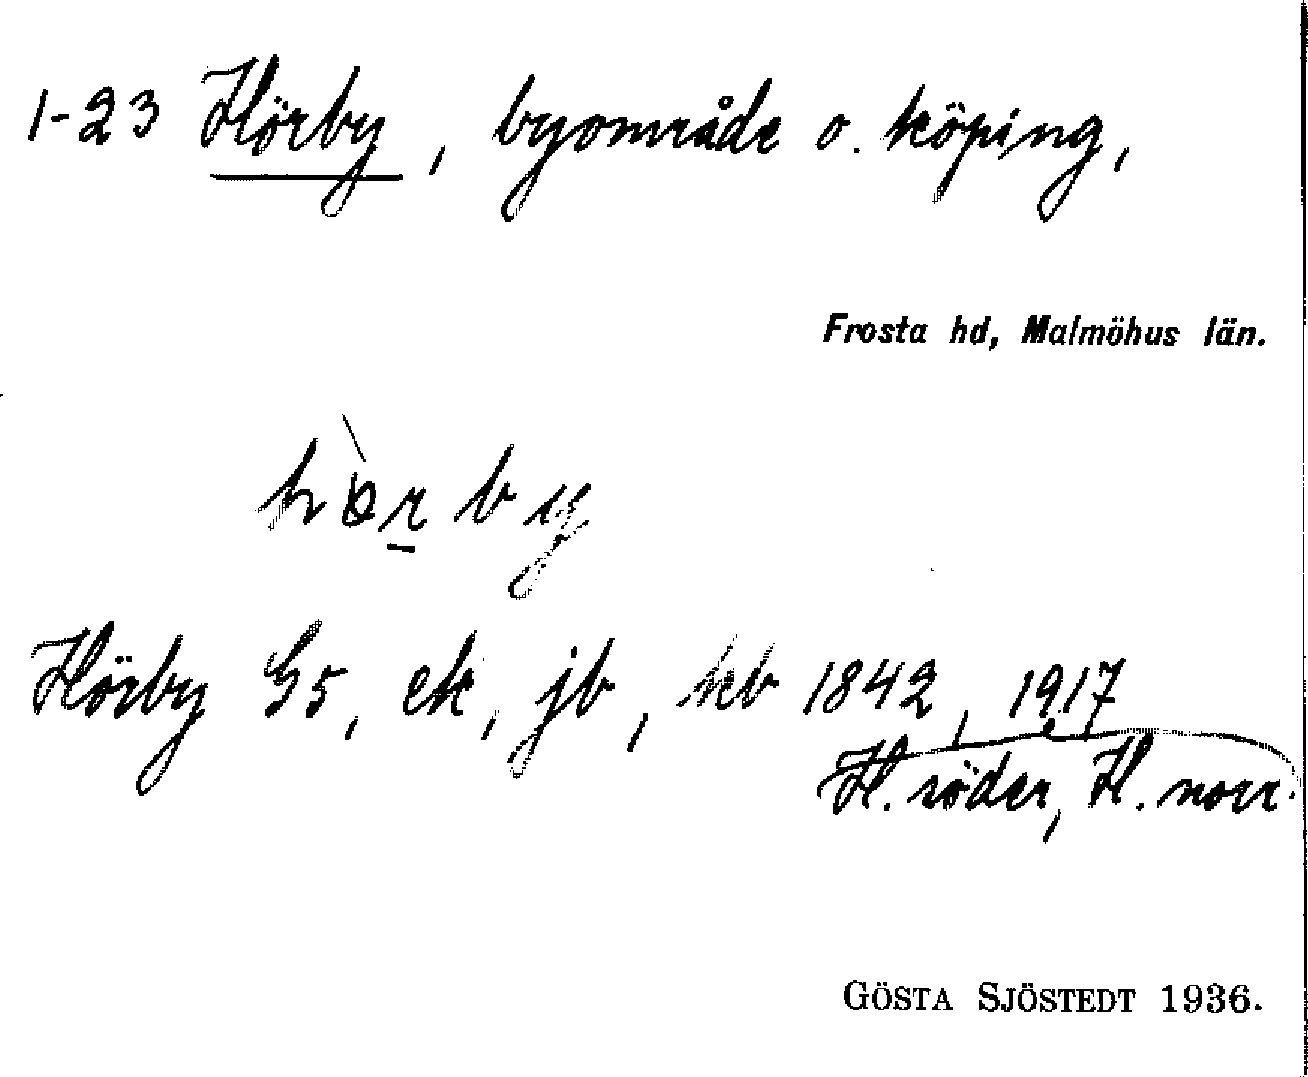 1-23 Hörby, byområde o. köping,
Frosta hd, Malmöhus län.
hòrby
Hörby G5, ek, jb, kb 1842, 1917
H. söder, H. norr.
GÖSTA SJÖSTEDT 1936.